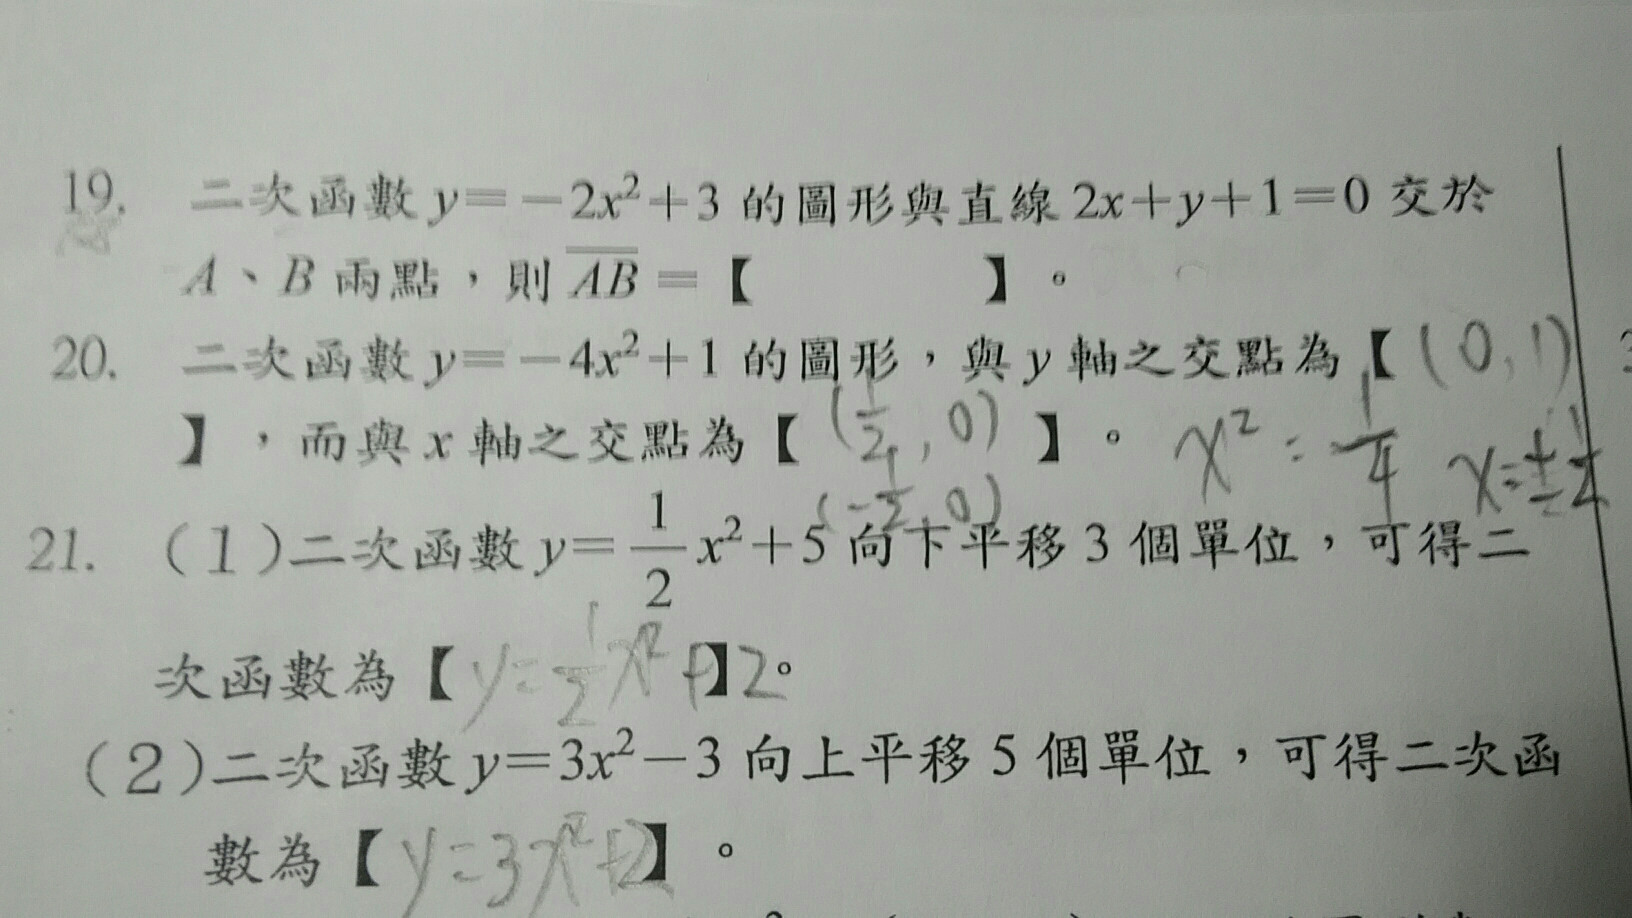 19. 二次函數 y=－2x²+3 的圖形與直線 2x+y+1=0 交於
A、B 兩點，則 A̅B̅ =【 】。
20. 二次函數 y=－4x²+1 的圖形，與 y 軸之交點為【 (0,1)
】，而與 x 軸之交點為【 (1/2, 0) 】。 x² = 1/4 x=±1/2
(-1/2, 0)
21. (1)二次函數 y=1/2 x²+5 向下平移 3 個單位，可得二
次函數為【 y=1/2 x²+2 】。
(2)二次函數 y=3x²－3 向上平移 5 個單位，可得二次函
數為【 y=3x²+2 】。